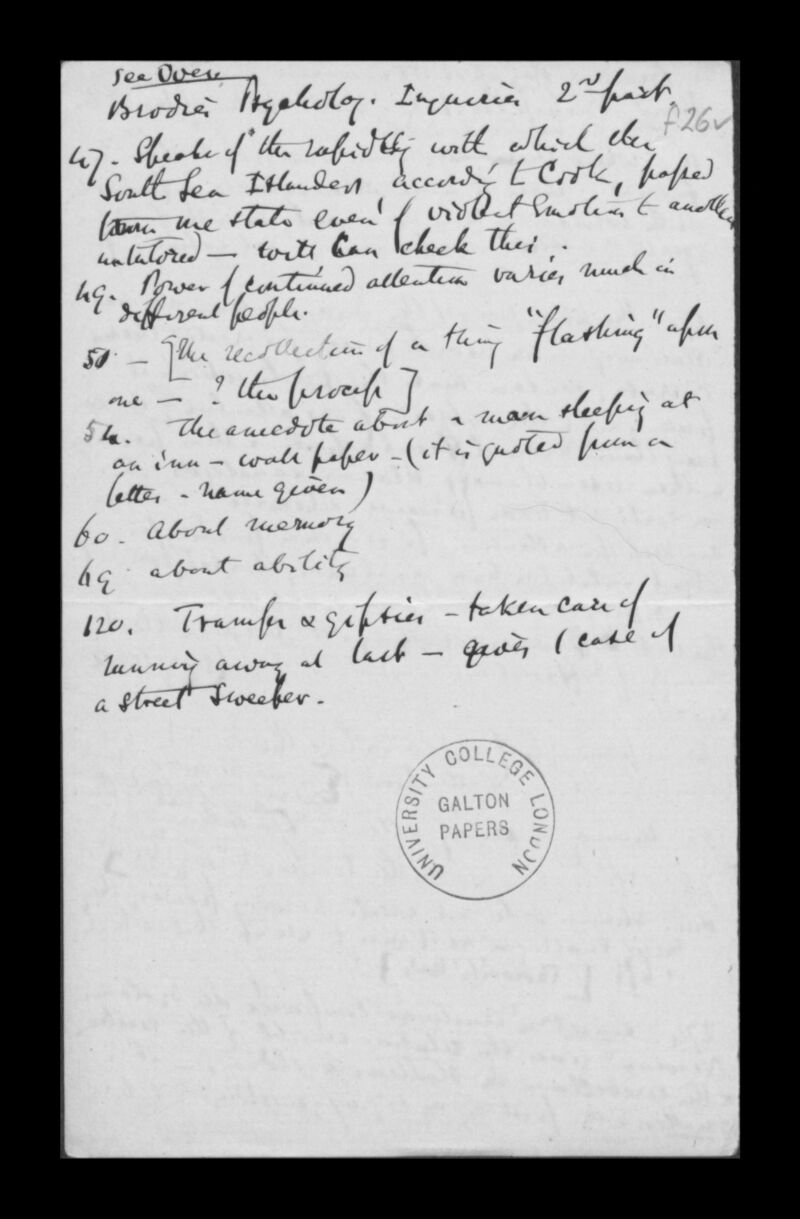 See Over
Brodie's Psycholog. Inquiries 2nd part.
f26v
47. Speaks of the rapidity with which the
South Sea Islanders according to Cook, passed
from one state even of violent Emotion to another
untutored — will can check this.
49. Power of continued attention varies much in
different people.
50 — [The recollection of a thing "flashing" upon
one — ? the process]
54. The anecdote about a man sleeping at
an inn — wall paper — (it is quoted from a
letter - name given)
60. About memory
69 about ability
120. Transfer & gipsies — taken care of
running away at last — gives (case of
a street Sweeper.
UNIVERSITY COLLEGE LONDON
GALTON
PAPERS